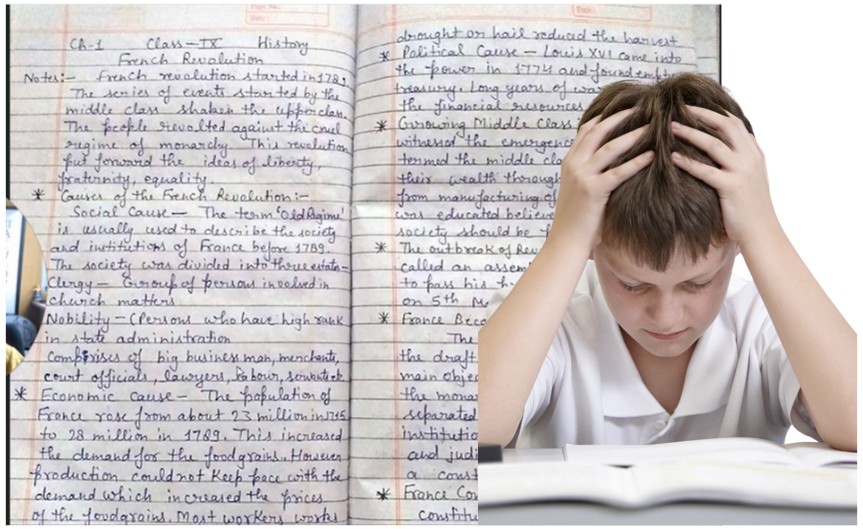 CA-1 Class-IX History
French Revolution
Notes:- French revolution started in 1789
The series of events started by the
middle class shaken the upperclass.
The people revolted against the cruel
regime of monarchy This revolution
put forward the ideas of liberty,
fraternity, equality.
* Causes of the French Revolution:-
Social Cause - The term 'Old Regime'
is usually used to describe the society
and institutions of France before 1789.
The society was divided into three estates-
Clergy - Group of persons involved in
church matters
Nobility - (Persons who have high rank
in state administration
Comprises of big business man, merchants,
court officials, lawyers, labour, servants
* Economic cause - The population of
France rose from about 23 million in 1715
to 28 million in 1789. This increased
the demand for the foodgrains. However
production could not keep pace with the
demand which increased the prices
of the foodgrains. Most workers
drought or hail reduced the harvest
* Political Cause - Louis XVI came into
the power in 1774 and found empty
treasury. Long years of
the financial resources
* Growing Middle Class
witnessed the
termed the middle
their wealth through
from manufacturing of
was educated
society should be
* The outbreak of
called an
to pass his
on 5th
* France
The
the draft
main
the
separated
and
a
* France